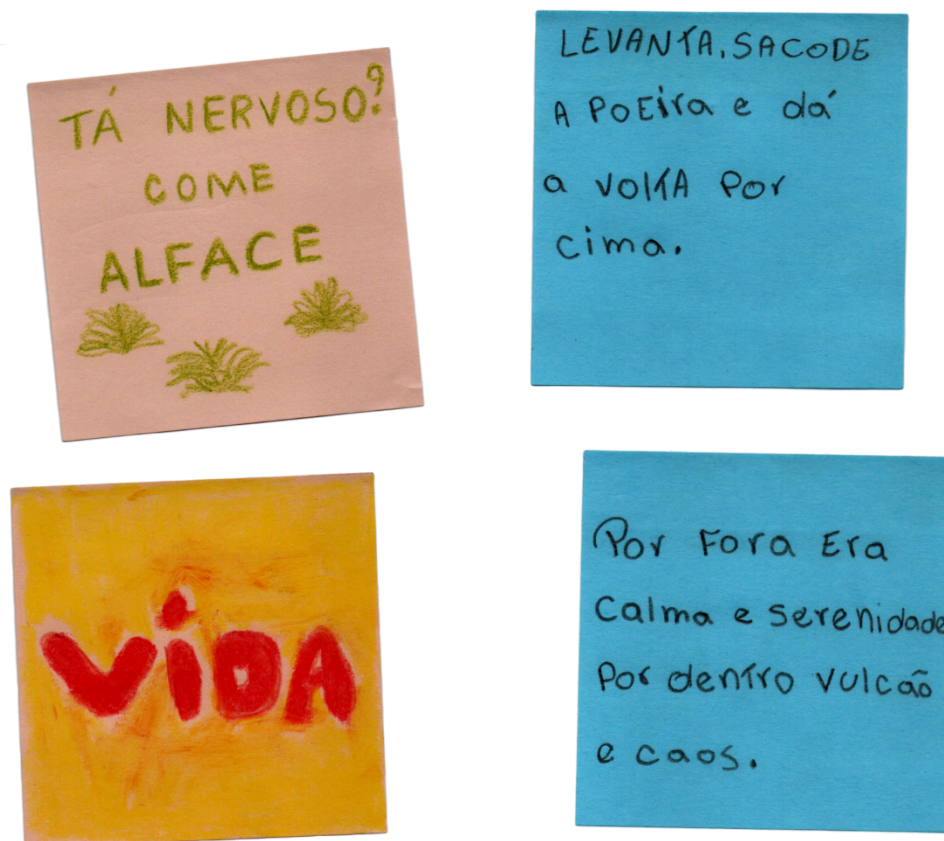 TÁ NERVOSO?
COME
ALFACE
LEVANTA, SACODE
A POEira e dá
a VOlTA Por
cima.
ViDA
Por Fora Era
Calma e serenidade
Por dentro vulcão
e caos.